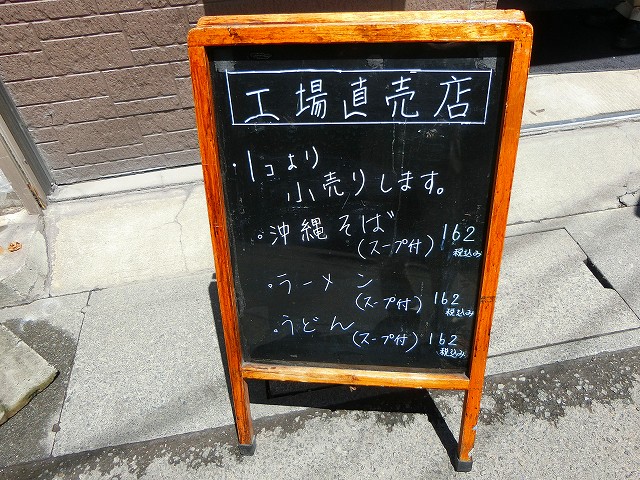 工場直売店
・1コより
小売りします。
。沖縄そば
(スープ付) 162
税込み
。ラーメン
(スープ付) 162
税込み
。うどん
(スープ付) 162
税込み